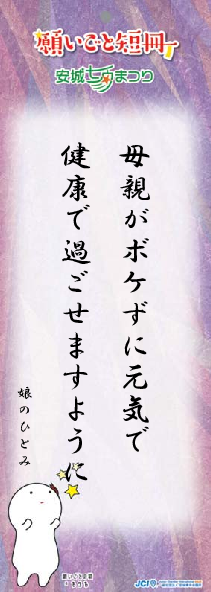 願いごと短冊
安城七夕まつり
母親がボケずに元気で
健康で過ごせますように
娘のひとみ
JCI